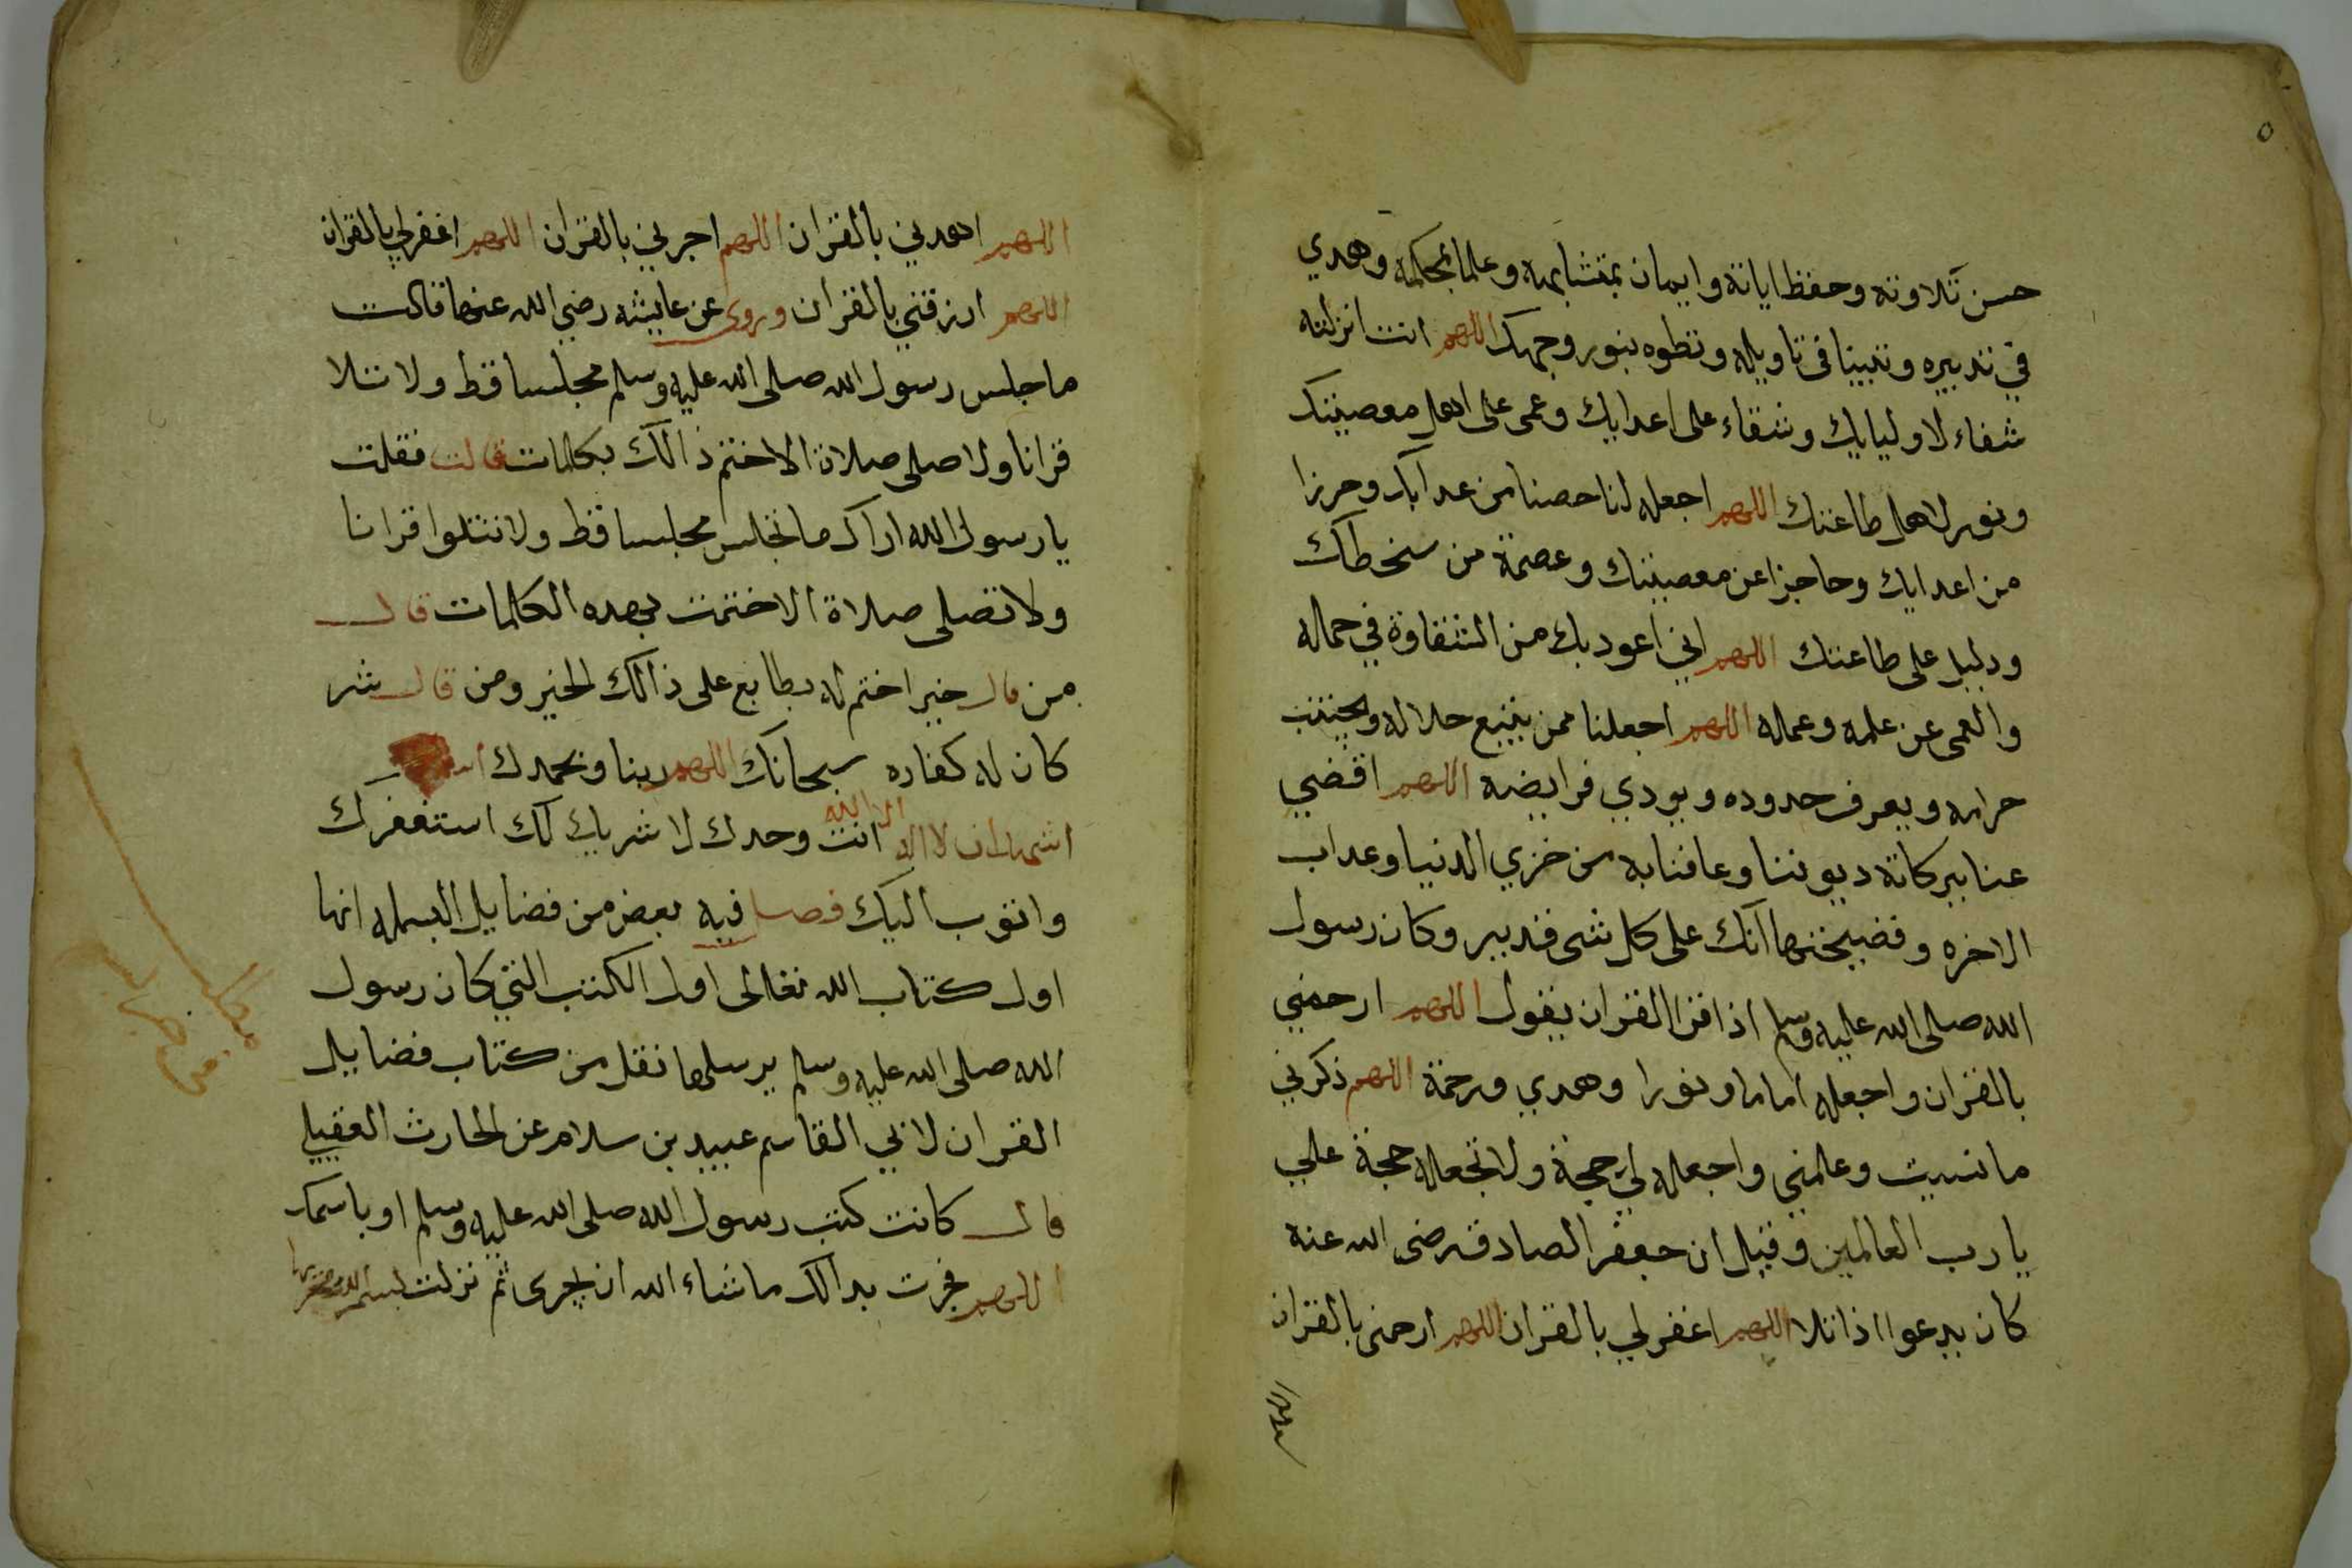 ٥
حسن تلاوته وحفظ اياته وايمان بمتشابهه وعلما بمحكمه وهدي
في تدبيره وتبيينا في تاويله وتطوه بنور وجهك اللهم انت انزلته
شفاء لاوليايك وشقاء على اعدايك وعمى على اهل معصيتك
ونور لاهل طاعتك اللهم اجعله لنا حصنا من عدابك وحرزا
من اعدايك وحاجزا عن معصيتك وعصمة من سخطك
ودليل على طاعتك اللهم اني اعود بك من الشقاوة في حماله
والعمى عن علمه وعماله اللهم اجعلنا ممن يتبع حلاله ويجتنب
حرامه ويعرف حدوده ويودي فرايضه اللهم اقضي
عنا ببركاته ديوننا وعافنا به من خزي الدنيا وعداب
الاخره وفضيحتها انك على كل شى قدير وكان رسول
الله صلى الله عليه وسلم اذا قرا القران يقول اللهم ارحمني
بالقران واجعله اماما ونورا وهدي ورحمة اللهم ذكرني
ما نسيت وعلمني واجعله لي حجة ولا تجعله حجة علي
يا رب العالمين وقيل ان جعفر الصادق رضى الله عنه
كان يدعوا اذا تلا اللهم اغفر لي بالقران اللهم ارحمنى بالقران
اللهم اهدني بالقران اللهم اجرني بالقران اللهم اغفرلي بالقران
اللهم ارزقني بالقران وروى عن عايشه رضي الله عنها قالت
ما جلس رسول الله صلى الله عليه وسلم مجلسا قط ولا تلا
قرانا ولا صلى صلاة الا ختم ذالك بكلمات قالت فقلت
يا رسول الله اراك ما تجلس مجلسا قط ولا تتلوا قرانا
ولا تصلى صلاة الا ختمت بهده الكلمات قال
من قال خيرا ختم له بطابع على ذالك الخير ومن قال شر
كان له كفاره سبحانك اللهم ربنا وبحمدك
اشهد ان لا اله الا الله انت وحدك لا شريك لك استغفرك
واتوب اليك فصل فيه بعض من فضايل البسمله انها
اول كتاب الله تعالى اول الكتب التي كان رسول
الله صلى الله عليه وسلم يرسلها نقل من كتاب فضايل
القران لابي القاسم عبيد بن سلام عن الحارث العقيلي
قال كانت كتب رسول الله صلى الله عليه وسلم او باسمك
اللهم فجرت بدالك ما شاء الله ان يجرى ثم نزلت بسم الله